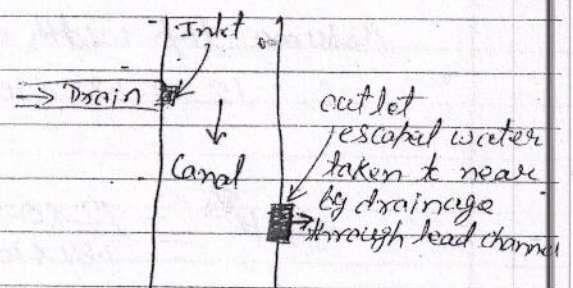 Inlet
Drain
outlet
escapal water
Canal
taken to near
by drainage
through lead channel